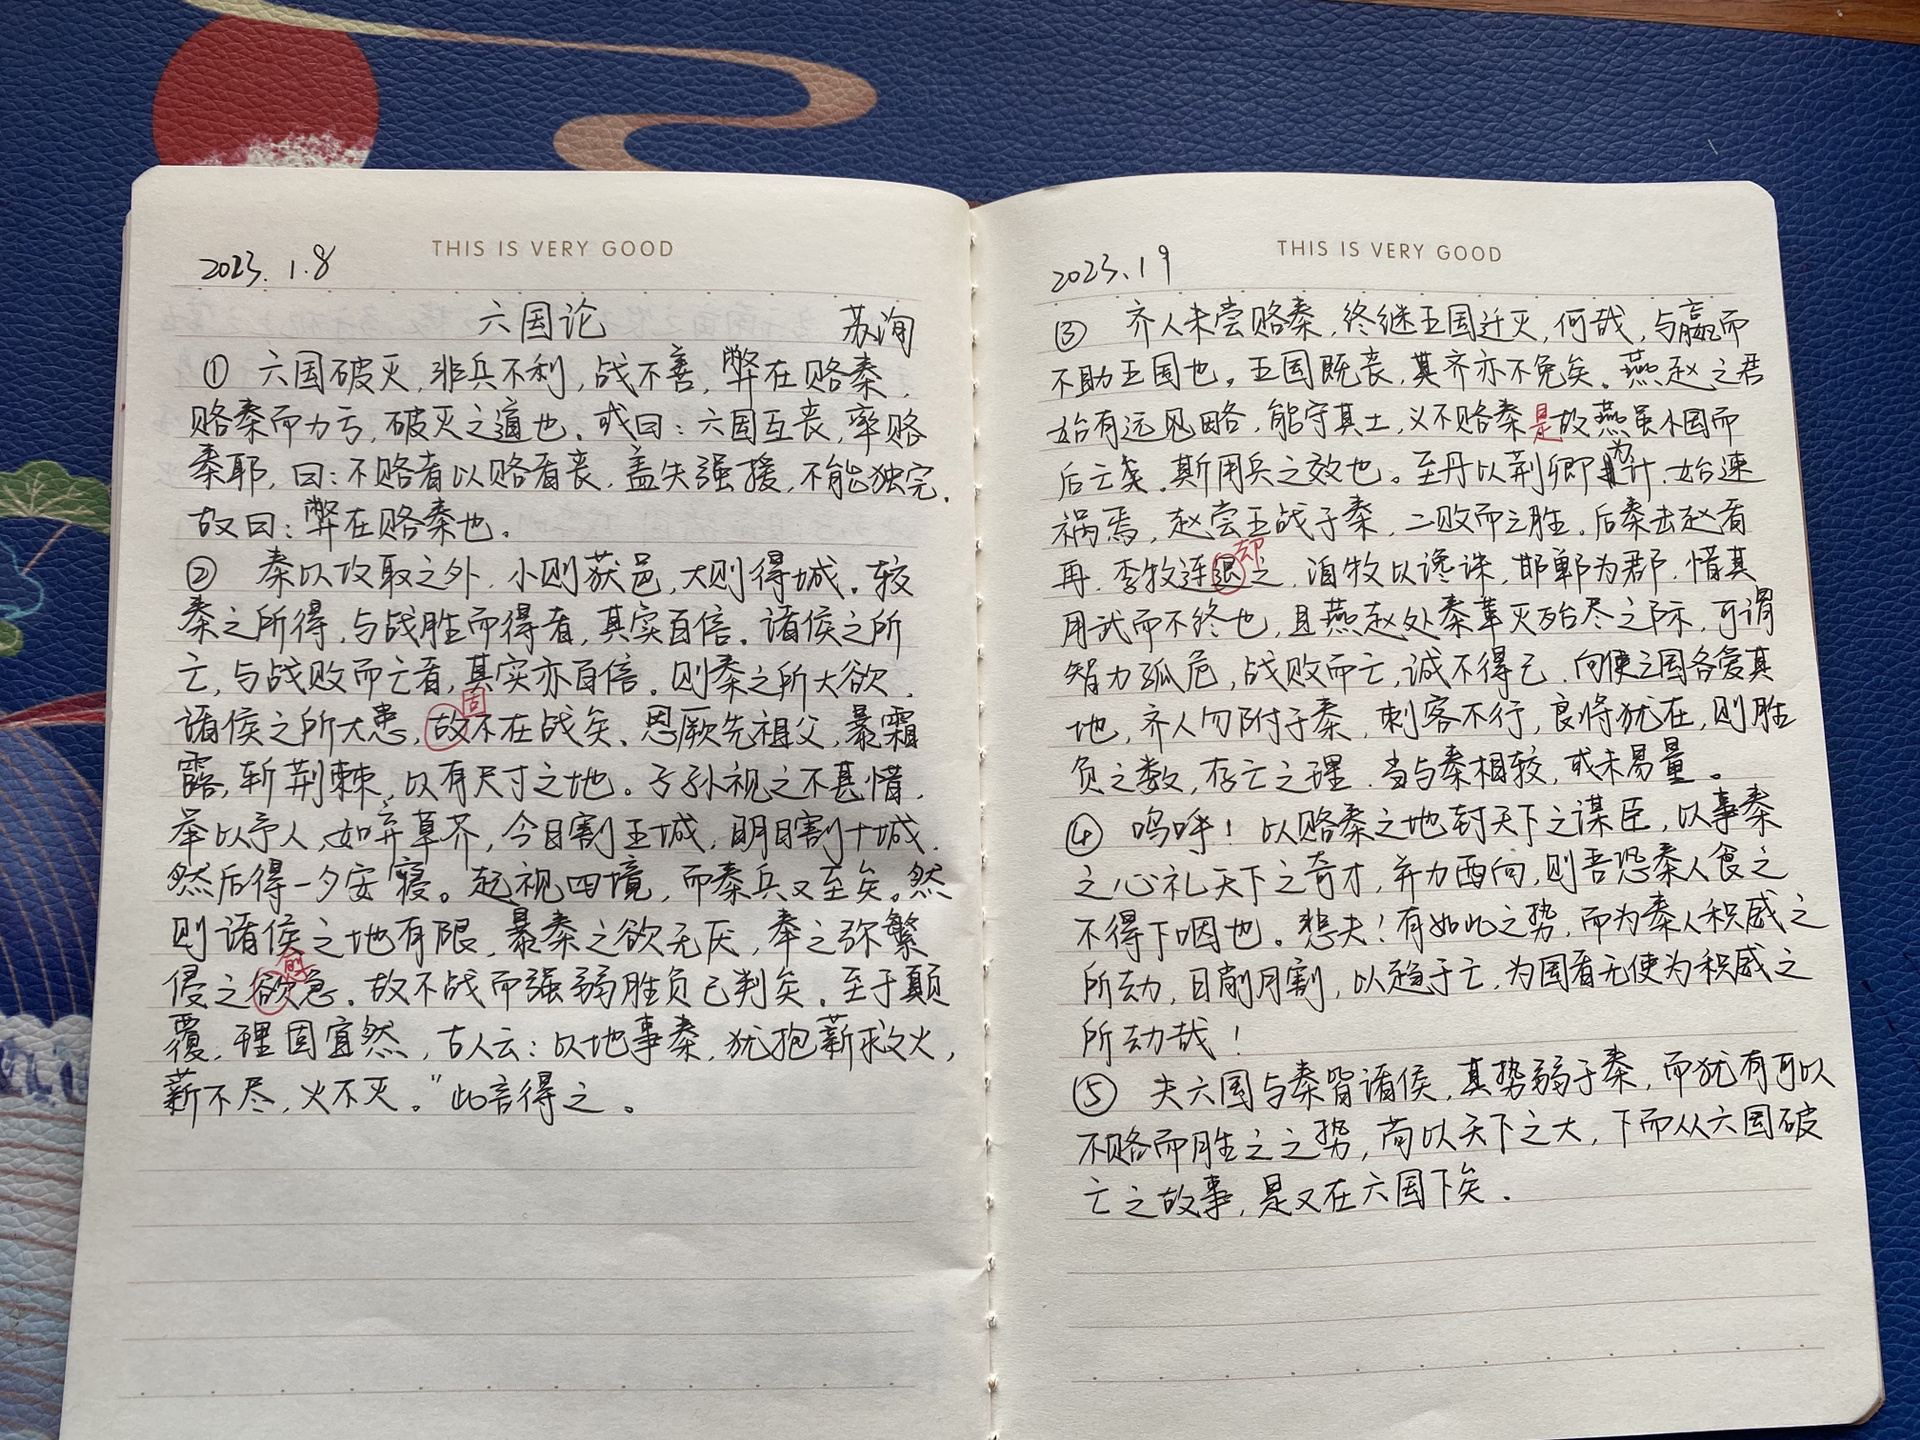 THIS IS VERY GOOD
2023.1.8
六国论 苏洵
① 六国破灭,非兵不利,战不善,弊在赂秦,
赂秦而力亏,破灭之道也。或曰:六国互丧,率赂
秦耶,曰:不赂者以赂者丧,盖失强援,不能独完.
故曰:弊在赂秦也。
② 秦以攻取之外,小则获邑,大则得城。较
秦之所得,与战胜而得者,其实百倍。诸侯之所
亡,与战败而亡者,其实亦百倍。则秦之所大欲,
固
诸侯之所大患,故不在战矣、思厥先祖父,暴霜
露,斩荆棘,以有尺寸之地。子孙视之不甚惜,
举以予人,如弃草芥,今日割五城,明日割十城,
然后得一夕安寝。起视四境,而秦兵又至矣。然
则诸侯之地有限,暴秦之欲无厌,奉之弥繁
愈
侵之欲急。故不战而强弱胜负已判矣。至于颠
覆,理固宜然,古人云:以地事秦,犹抱薪救火,
薪不尽,火不灭。”此言得之。
THIS IS VERY GOOD
2023.19
③ 齐人未尝赂秦,终继五国迁灭,何哉,与嬴而
不助五国也。五国既丧,其齐亦不免矣。燕赵之君
始有远见略,能守其土,义不赂秦是故燕虽小国而
后亡矣,斯用兵之效也。至丹以荆卿为计,始速
祸焉,赵尝五战于秦,二败而之胜。后秦击赵者
再.李牧连退却之,洎牧以谗诛,邯郸为郡.惜其
用武而不终也,且燕赵处秦革灭殆尽之际,可谓
智力孤危,战败而亡,诚不得已.向使之国各爱其
地,齐人勿附于秦,刺客不行,良将犹在,则胜
负之数,存亡之理.当与秦相较,或未易量。
④ 呜呼!以赂秦之地封天下之谋臣,以事秦
之心礼天下之奇才,并力西向,则吾恐秦人食之
不得下咽也。悲夫!有如此之势,而为秦人积威之
所劫,日削月割,以趋于亡,为国者无使为积威之
所劫哉!
⑤ 夫六国与秦皆诸侯,其势弱于秦,而犹有可以
不赂而胜之之势,苟以天下之大,下而从六国破
亡之故事,是又在六国下矣.